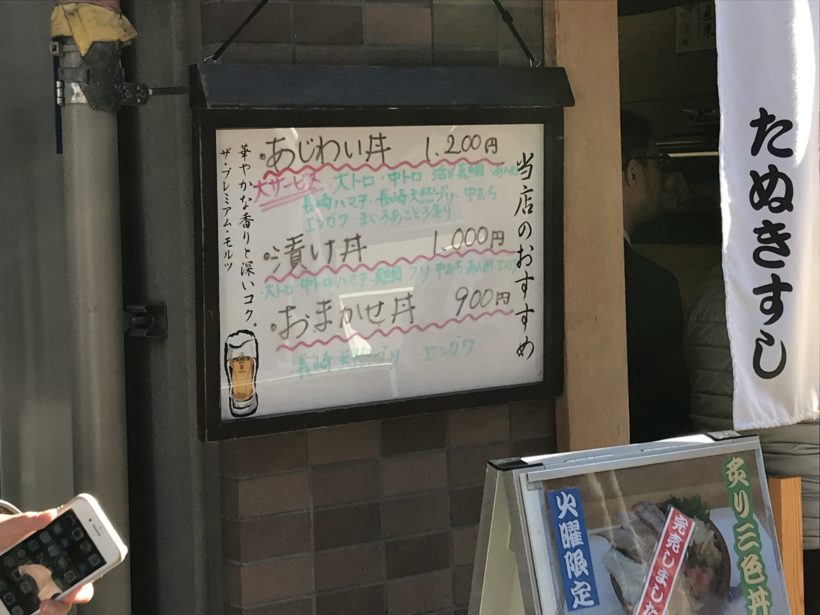 当店のおすすめ
・あじわい丼 1,200円
大サービス 大トロ・中トロ・活〆長崎
長崎ハマチ・長崎天然ブリ・中おち
エンガワ
・漬け丼 1,000円
大トロ・中トロ・ハマチ・ブリ・中おち
・おまかせ丼 900円
・長崎天然ブリ ・エンガワ
華やかな香りと深いコク。
ザ・プレミアム・モルツ
たぬきすし
炙り三色丼
火曜限定
完売しました